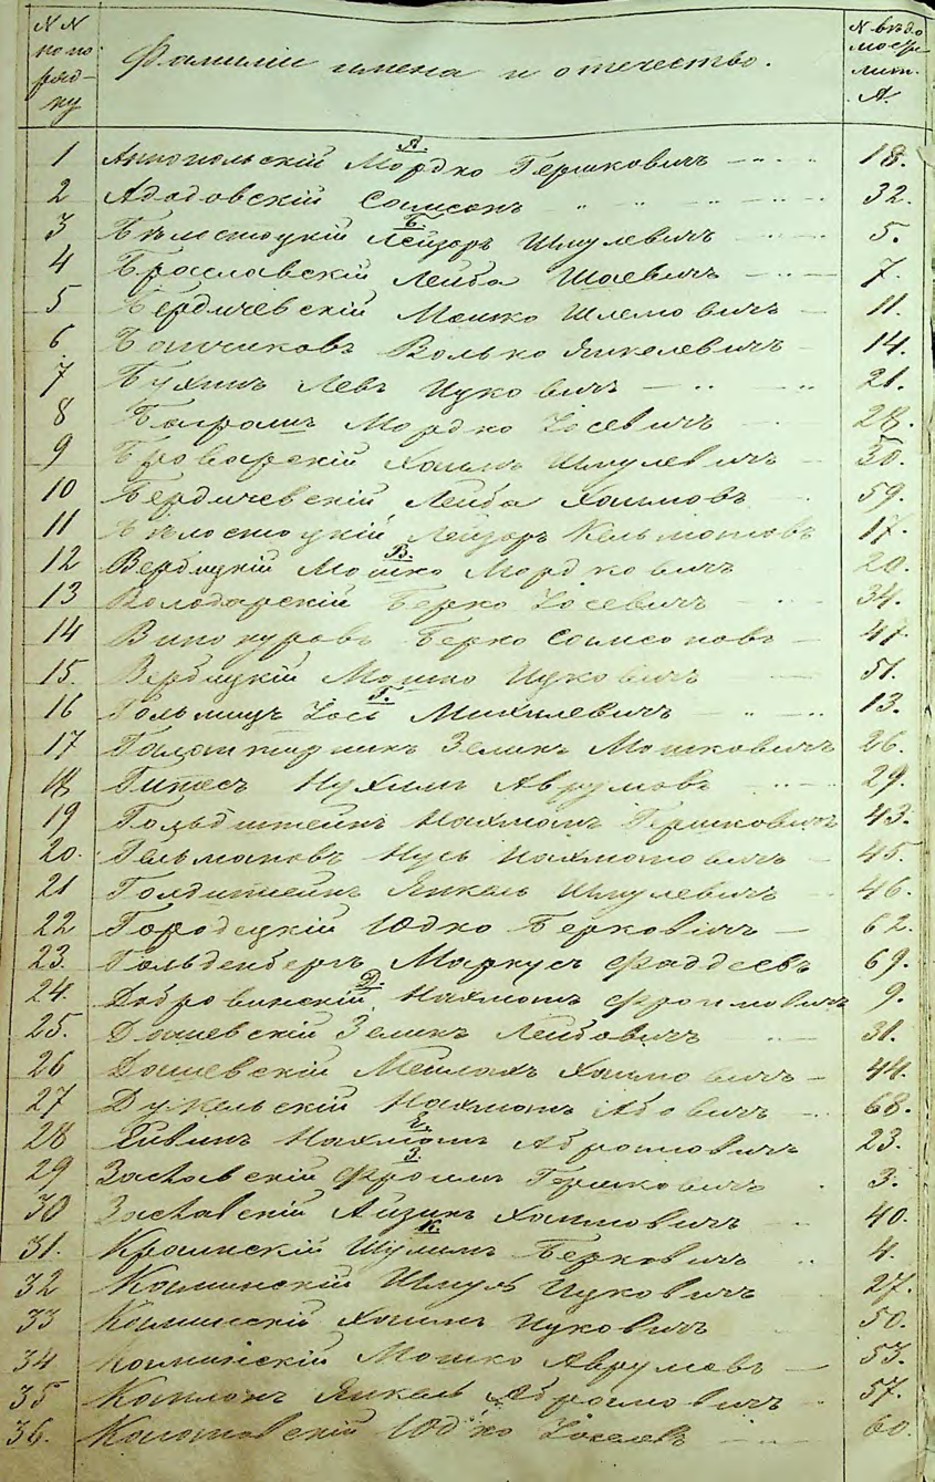 NN по порядку Фамиліи имена и отчество. N вѣдомости лит. А.
А.
1 Аннопольскій Мордко Гершковичъ 18.
2 Ададовскій Самсонъ 32.
Б.
3 Бѣлостоцкій Лейзоръ Шмулевичъ 5.
4 Браславскій Лейба Шаевичъ 7.
5 Бердичевскій Мошко Шлемовичъ 11.
6 Волько Янкелевичъ 14.
7 Бухинъ Левъ Ицковичъ 21.
8 Мордко Іосевичъ 28.
9 Броварскій Хаимъ Шмулевичъ 30.
10 Бердичевскій Лейба Хаимовъ 59.
11 Бѣлостоцкій Лейзоръ Кельмановъ 17.
В.
12 Вербицкій Мошко Мордковичъ 20.
13 Володарскій Берко Іосевичъ 34.
14 Винокуровъ Берко Самсоновъ 47.
15. Вербицкій Мошко Ицковичъ 51.
Г.
16 Іось Михилевичъ 13.
17 Галантирникъ Зеликъ Мошковичъ 26.
18 Нухимъ Аврумовъ 29.
19 Гольдштейнъ Нахманъ Гершковичъ 43.
20. Гельмановъ Нусь Нахмановичъ 45.
21 Голдштейнъ Янкель Шмулевичъ 46.
22 Городецкій Юдко Берковичъ 62.
23. Гольденбергъ Маркусъ Фаддеевъ 69.
Д.
24. Добровинскій Нахманъ Фроимовичъ 9.
25. Дашевскій Зеликъ Лейбовичъ 31.
26 Дашевскій Мейлахъ Хаимовичъ 44.
27 Дукельскій Нахманъ Абовичъ 68.
Е.
28 Нахманъ Абрамовичъ 23.
З.
29 Заславскій Фроимъ Гершковичъ 3.
30 Заславскій Айзикъ Хаимовичъ 40.
К.
31. Краинскій Шулимъ Берковичъ 4.
32 Каминскій Шмуль Ицковичъ 27.
33 Каминскій Хаимъ Ицковичъ 50.
34 Каминскій Мошко Аврумовъ 53.
35 Капланъ Янкель Абрамовичъ 57.
36. Юдко Іоселевъ 60.